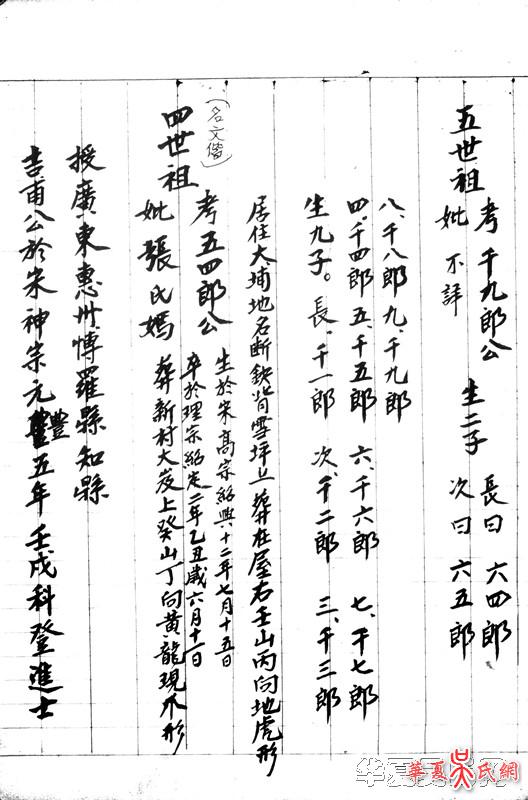 吉甫公於宋神宗元體五年壬戌科登進士
授廣東惠州博羅縣知縣
四世祖
(名文偕)
考五四郎公
妣張氏媽
生於宋高宗紹興十二年七月十五日
卒於理宗紹定二年乙丑歲六月十一日
葬新村大岌上癸山丁向黃龍現爪形
居住大埔地名断鈌背雪坪上葬在屋右壬山丙向地虎形
生九子。長,千一郎 次,千二郎 三,千三郎
四,千四郎 五,千五郎 六,千六郎 七,千七郎
八,千八郎 九,千九郎
五世祖
考千九郎公
妣不詳
生二子
長曰六四郎
次曰六五郎
華夏吴氏網